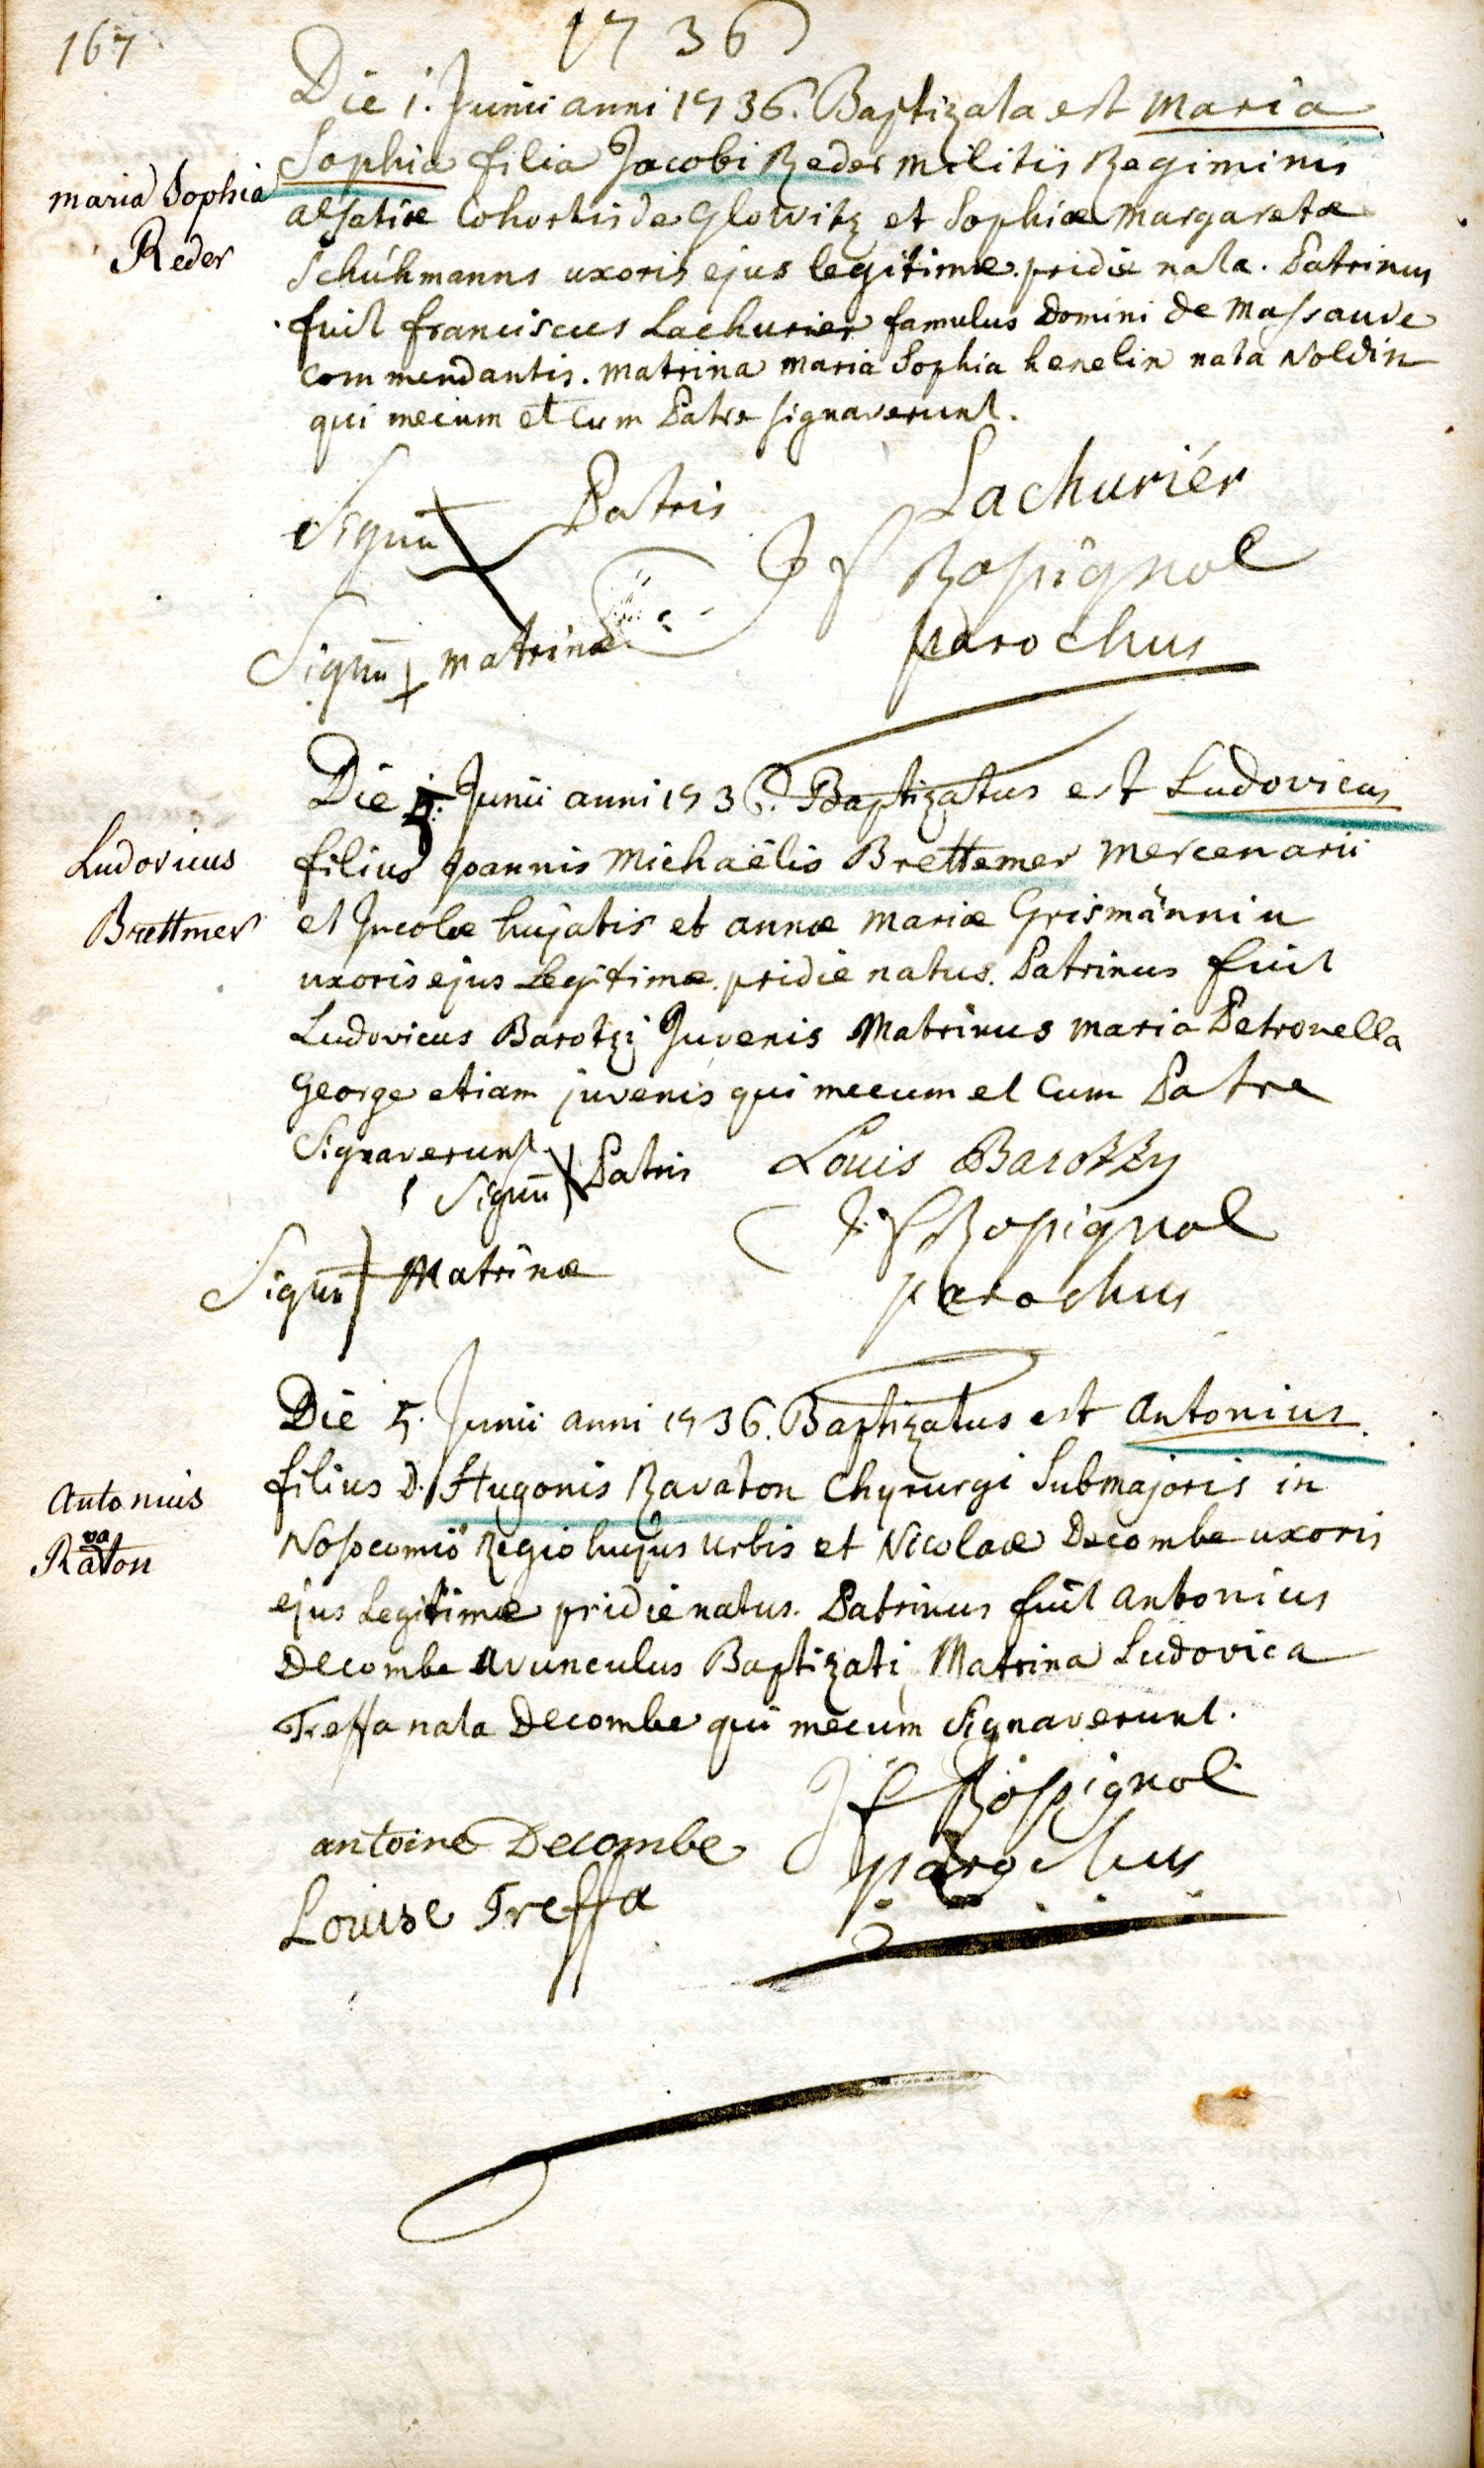 167
1736
Die 1. Junii anni 1736. Baptizata est Maria
Sophia filia Jacobi Reder militis Regiminis
alsatiæ Cohortis de Glowitz et Sophiæ Margaretæ
Schúhmanns uxoris ejus legitimæ. pridie nata. Patrinus
fuit franciscus Lachurier famulus Domini de Massauve
commendantis. matrina maria Sophia henelin nata Noldin
qui mecum et cum Patre signaverunt.
maria Sophia
Reder
Signū Patris
Lachuriér
JF Rossignol
parochus
Signū + matrinæ
Die Junii anni 1736. Baptizatus est Ludovicus
filius Joannis Michaëlis Brettemer mercenarii
et Incolæ hujatis et annæ Mariæ Grismännin
uxoris ejus Legitimæ. pridie natus. Patrinus fuit
Ludovicus Barotzi Juvenis Matrinus maria Petronella
George etiam juvenis qui mecum et cum Patre
Signaverunt
Ludovicus
Brettmer
Signū Patris
Louis Barozzy
JF Rossignol
parochus
Signū Matrinæ
Die 5. Junii anni 1736. Baptizatus est Antonius
filius D. Hugonis Ravaton Chyrurgi Submajoris in
Nosocomio Regio hujus urbis et Nicolaæ Decombe uxoris
ejus Legitimæ pridie natus. Patrinus fuit Antonius
Decombe avunculus Baptizati, Matrina Ludovica
Treffa nata Decombe qui mecum signaverunt.
Antonius
va
Raton
JF Rossignol
parochus
antoine Decombe
Louise Treffa